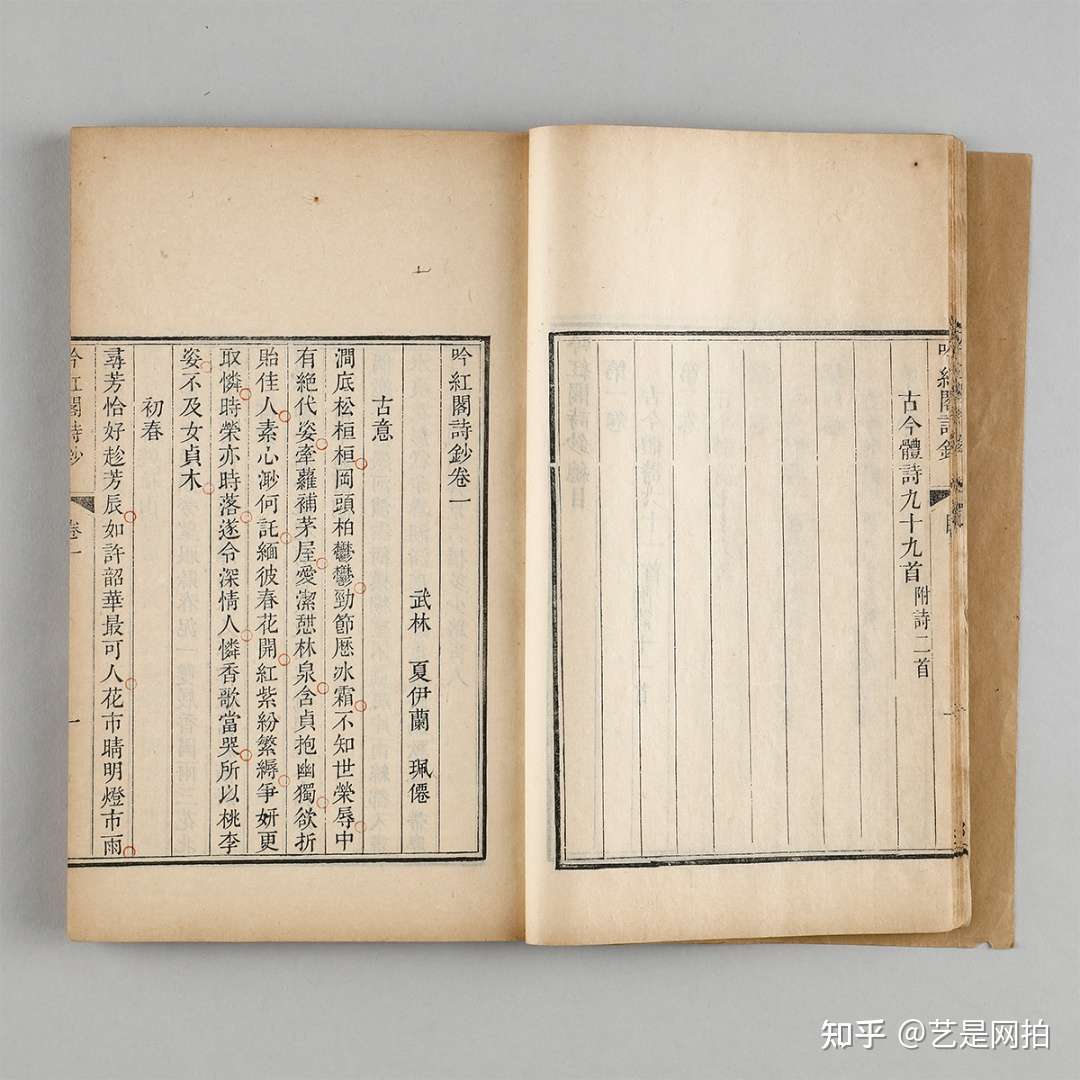 古今體詩九十九首附詩二首
吟紅閣詩鈔
吟紅閣詩鈔卷一
武林　夏伊蘭　珮僊
古意
澗底松桓桓岡頭柏鬱鬱勁節厯冰霜不知世榮辱中
有絶代姿牽蘿補茅屋愛潔憇林泉含貞抱幽獨欲折
貽佳人素心渺何託緬彼春花開紅紫紛繁縟爭妍更
取憐時榮亦時落遂令深情人憐香歌當哭所以桃李
姿不及女貞木
初春
尋芳恰好趁芳辰如許韶華最可人花市晴明燈市雨
吟紅閣詩鈔　卷一　一
知乎 @艺是网拍